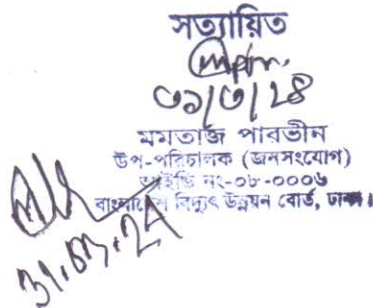 সত্যায়িত
৩১/৩/২৪
মমতাজ পারভীন
উপ-পরিচালক (জনসংযোগ)
আইডি নং-০৮-০০০৬
বাংলাদেশ বিদ্যুৎ উন্নয়ন বোর্ড, ঢাকা।
31.03.24